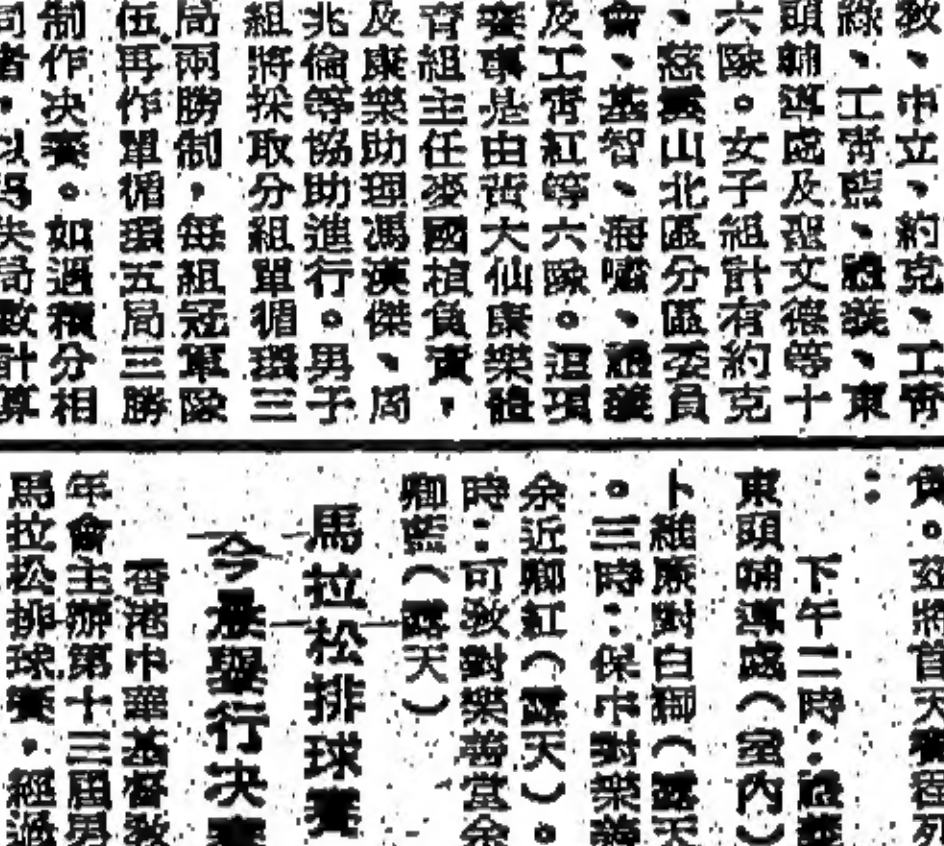 教、中立、約克、工青
綠、工青藍、、東
頭輔導處及聖文德等十
六隊。女子組計有約克
、慈雲山北區分區委員
會、基智、海嘯、
及工青紅等六隊。這項
賽事是由黃大仙康樂體
育組主任麥國楨負責,
及康樂助理馮漢傑、周
兆倫等協助進行。男子
組將採取分組單循環三
局兩勝制,每組冠軍隊
伍再作單循環五局三勝
制作决賽。如遇積分相
同者,以得失局數計算
。茲將首天賽程列
:
下午二時:
東頭輔導處(室內)
卜維廉對白獅(露天
。三時:保中對樂善
余近卿紅(露天)。
時:可教對樂善堂余
卿藍(露天)
馬拉松排球賽
今晨舉行决賽
香港中華基督教
年會主辦第十三屆男
馬拉松排球賽,經過